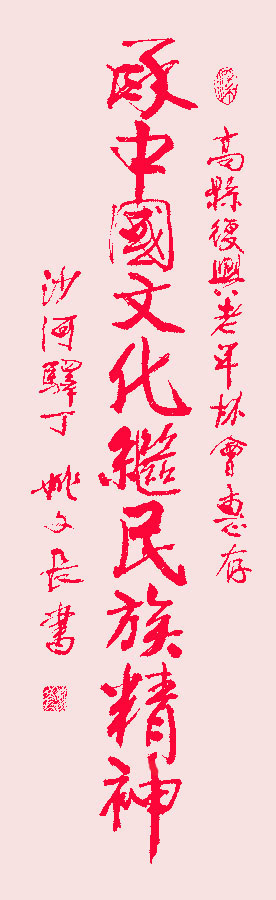 高縣復興老年协會惠存
承中國文化繼民族精神
沙河驛丁 姚文長書